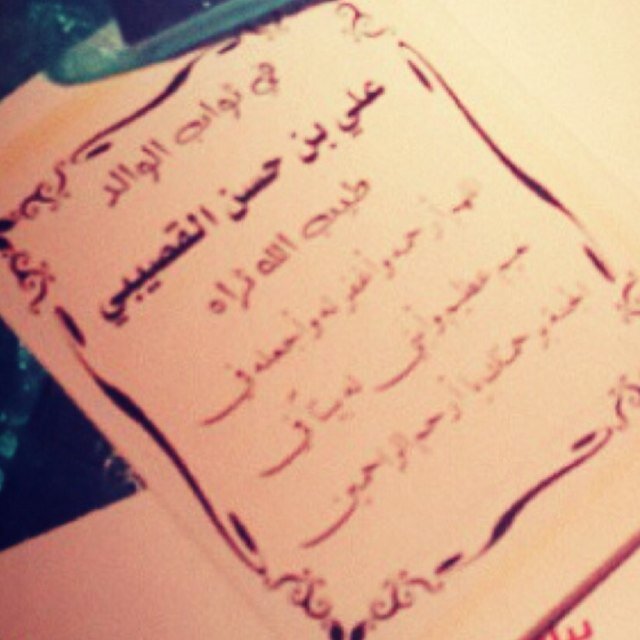 في ثواب الوالد
علي بن حسن القصيبي
طيب الله ثراه
اللهم أرحمه وأغفر له وأجعله في
له بيتاً في
الجنة برحمتك يا أرحم الراحمين